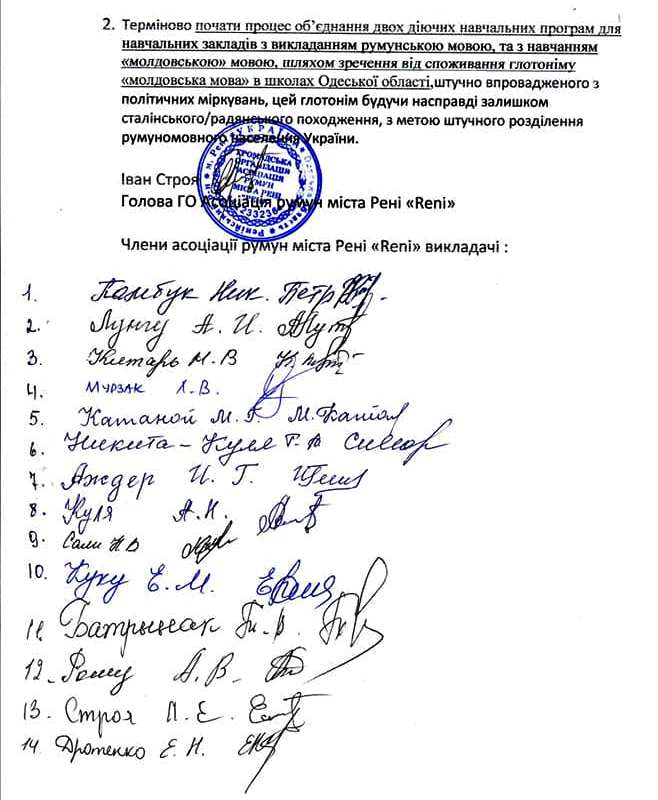 2. Терміново почати процес об’єднання двох діючих навчальних програм для
навчальних закладів з викладанням румунською мовою, та з навчанням
«молдовською» мовою, шляхом зречення від споживання глотоніму
«молдовська мова» в школах Одеської області,штучно впровадженого з
політичних міркувань, цей глотонім будучи насправді залишком
сталінського/радянського походження, з метою штучного розділення
румуномовного населення України.
Іван Строя
Голова ГО Асоціація румун міста Рені «Reni»
УКРАЇНА
ГРОМАДСЬКА
ОРГАНІЗАЦІЯ
АСОЦІАЦІЯ
РУМУН
МІСТА РЕНІ
Члени асоціації румун міста Рені «Reni» викладачі :
1. Камбук Ник. Петр
2. Лунгу А. И.
3. Китарь М. В
4. Мурзак Л. В.
5. Катаной М. Г.
6. Никита – Куля Г. В
7. Аждер И. Г.
8. Куля А. Н.
9. Сали Н В
10. Куку Е. М.
11. В.
12. А. В.
13. Строя Е.
14. Дротенко Е. Н.